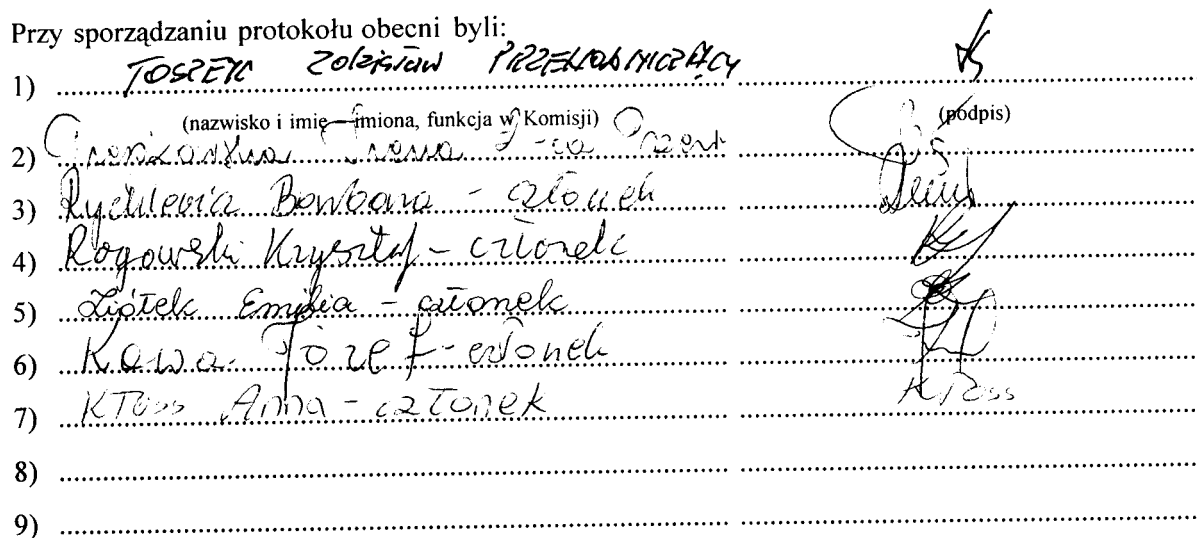 Przy sporządzaniu protokołu obecni byli:
1) TOSZEK Zdzisław PRZEWODNICZĄCY
(nazwisko i imię—imiona, funkcja w Komisji) (podpis)
2) Irena Z-ca
3) Barbara - członek
4) Rogowski Krzysztof - członek
5) Ziółek Emilia - członek
6) Kawa Józef - członek
7) Kłoss Anna - członek Kłoss
8)
9)